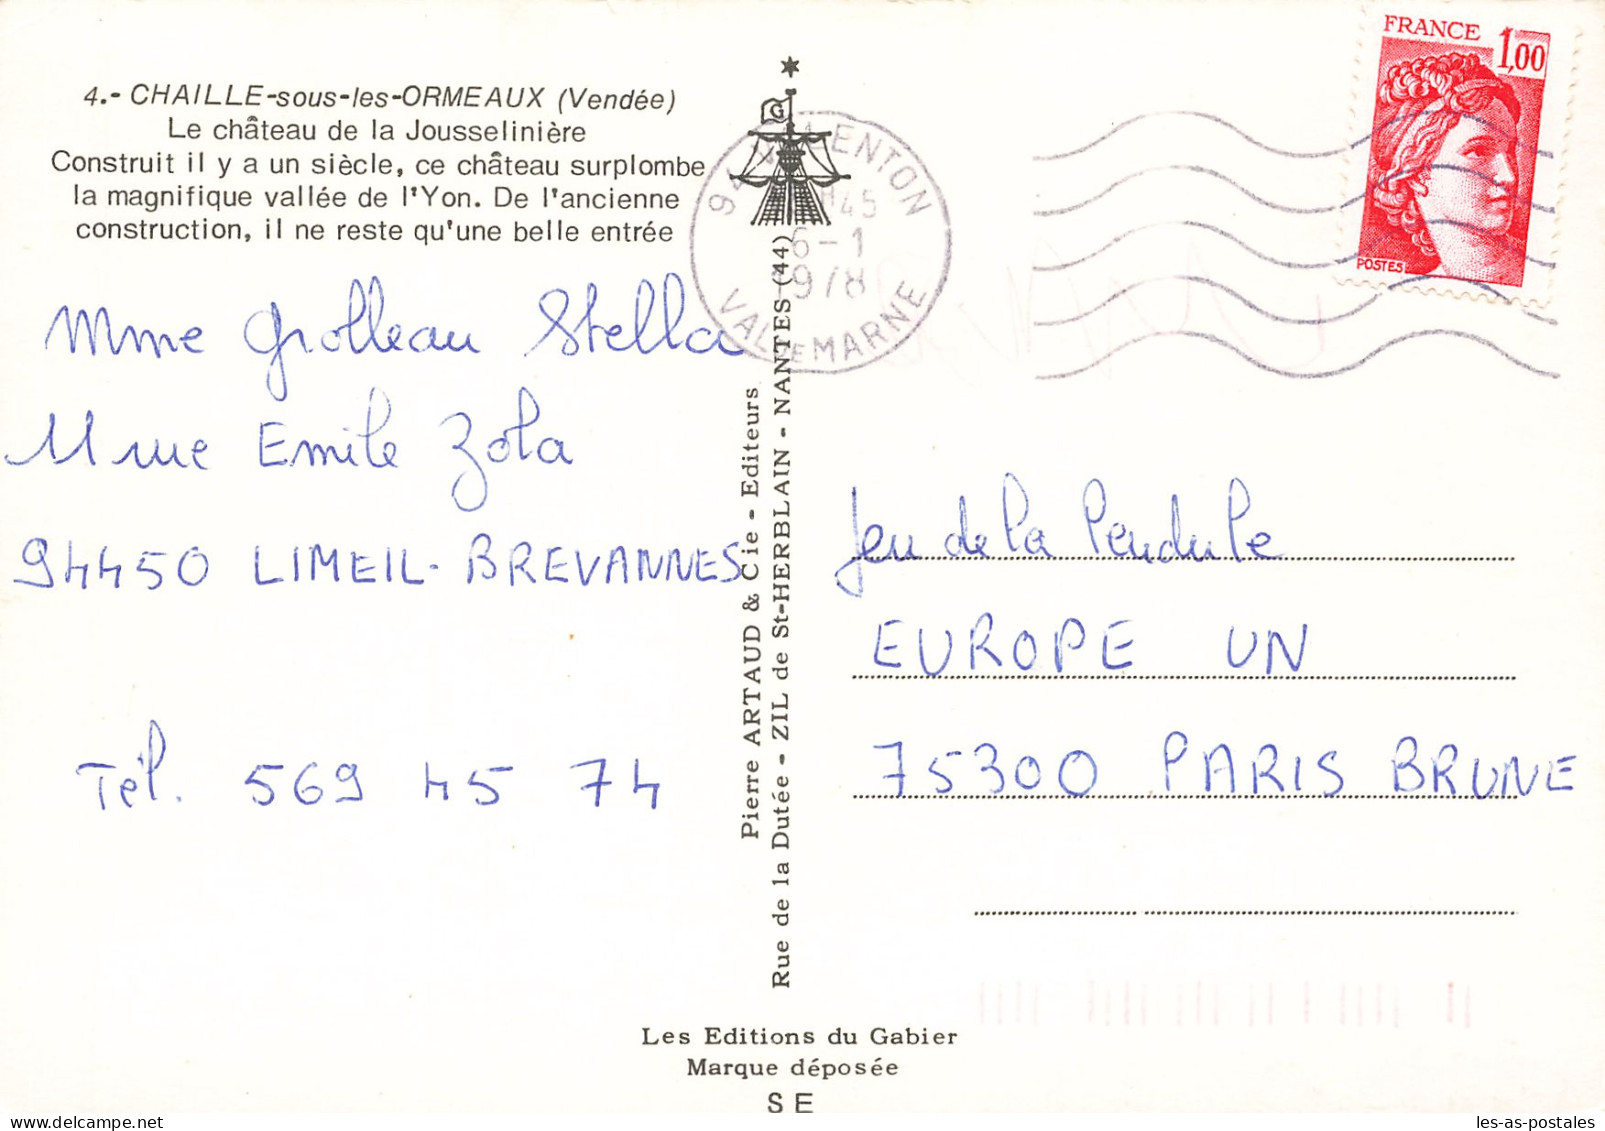 4.- CHAILLE-sous-les-ORMEAUX (Vendée)
Le château de la Jousselinière
Construit il y a un siècle, ce château surplombe
la magnifique vallée de l'Yon. De l'ancienne
construction, il ne reste qu'une belle entrée
Mme Grolleau Stella
11 rue Emile Zola
94450 LIMEIL-BREVANNES
Tél. 569 45 74
G
94 LENTON
H45
6-1
1978
VAL DE MARNE
FRANCE 1,00
POSTES
Pierre ARTAUD & Cie - Editeurs
Rue de la Dutée - ZIL de St-HERBLAIN - NANTES (44)
Jeu de la Pendule
EUROPE UN
75300 PARIS BRUNE
Les Editions du Gabier
Marque déposée
S E
les-as-postales